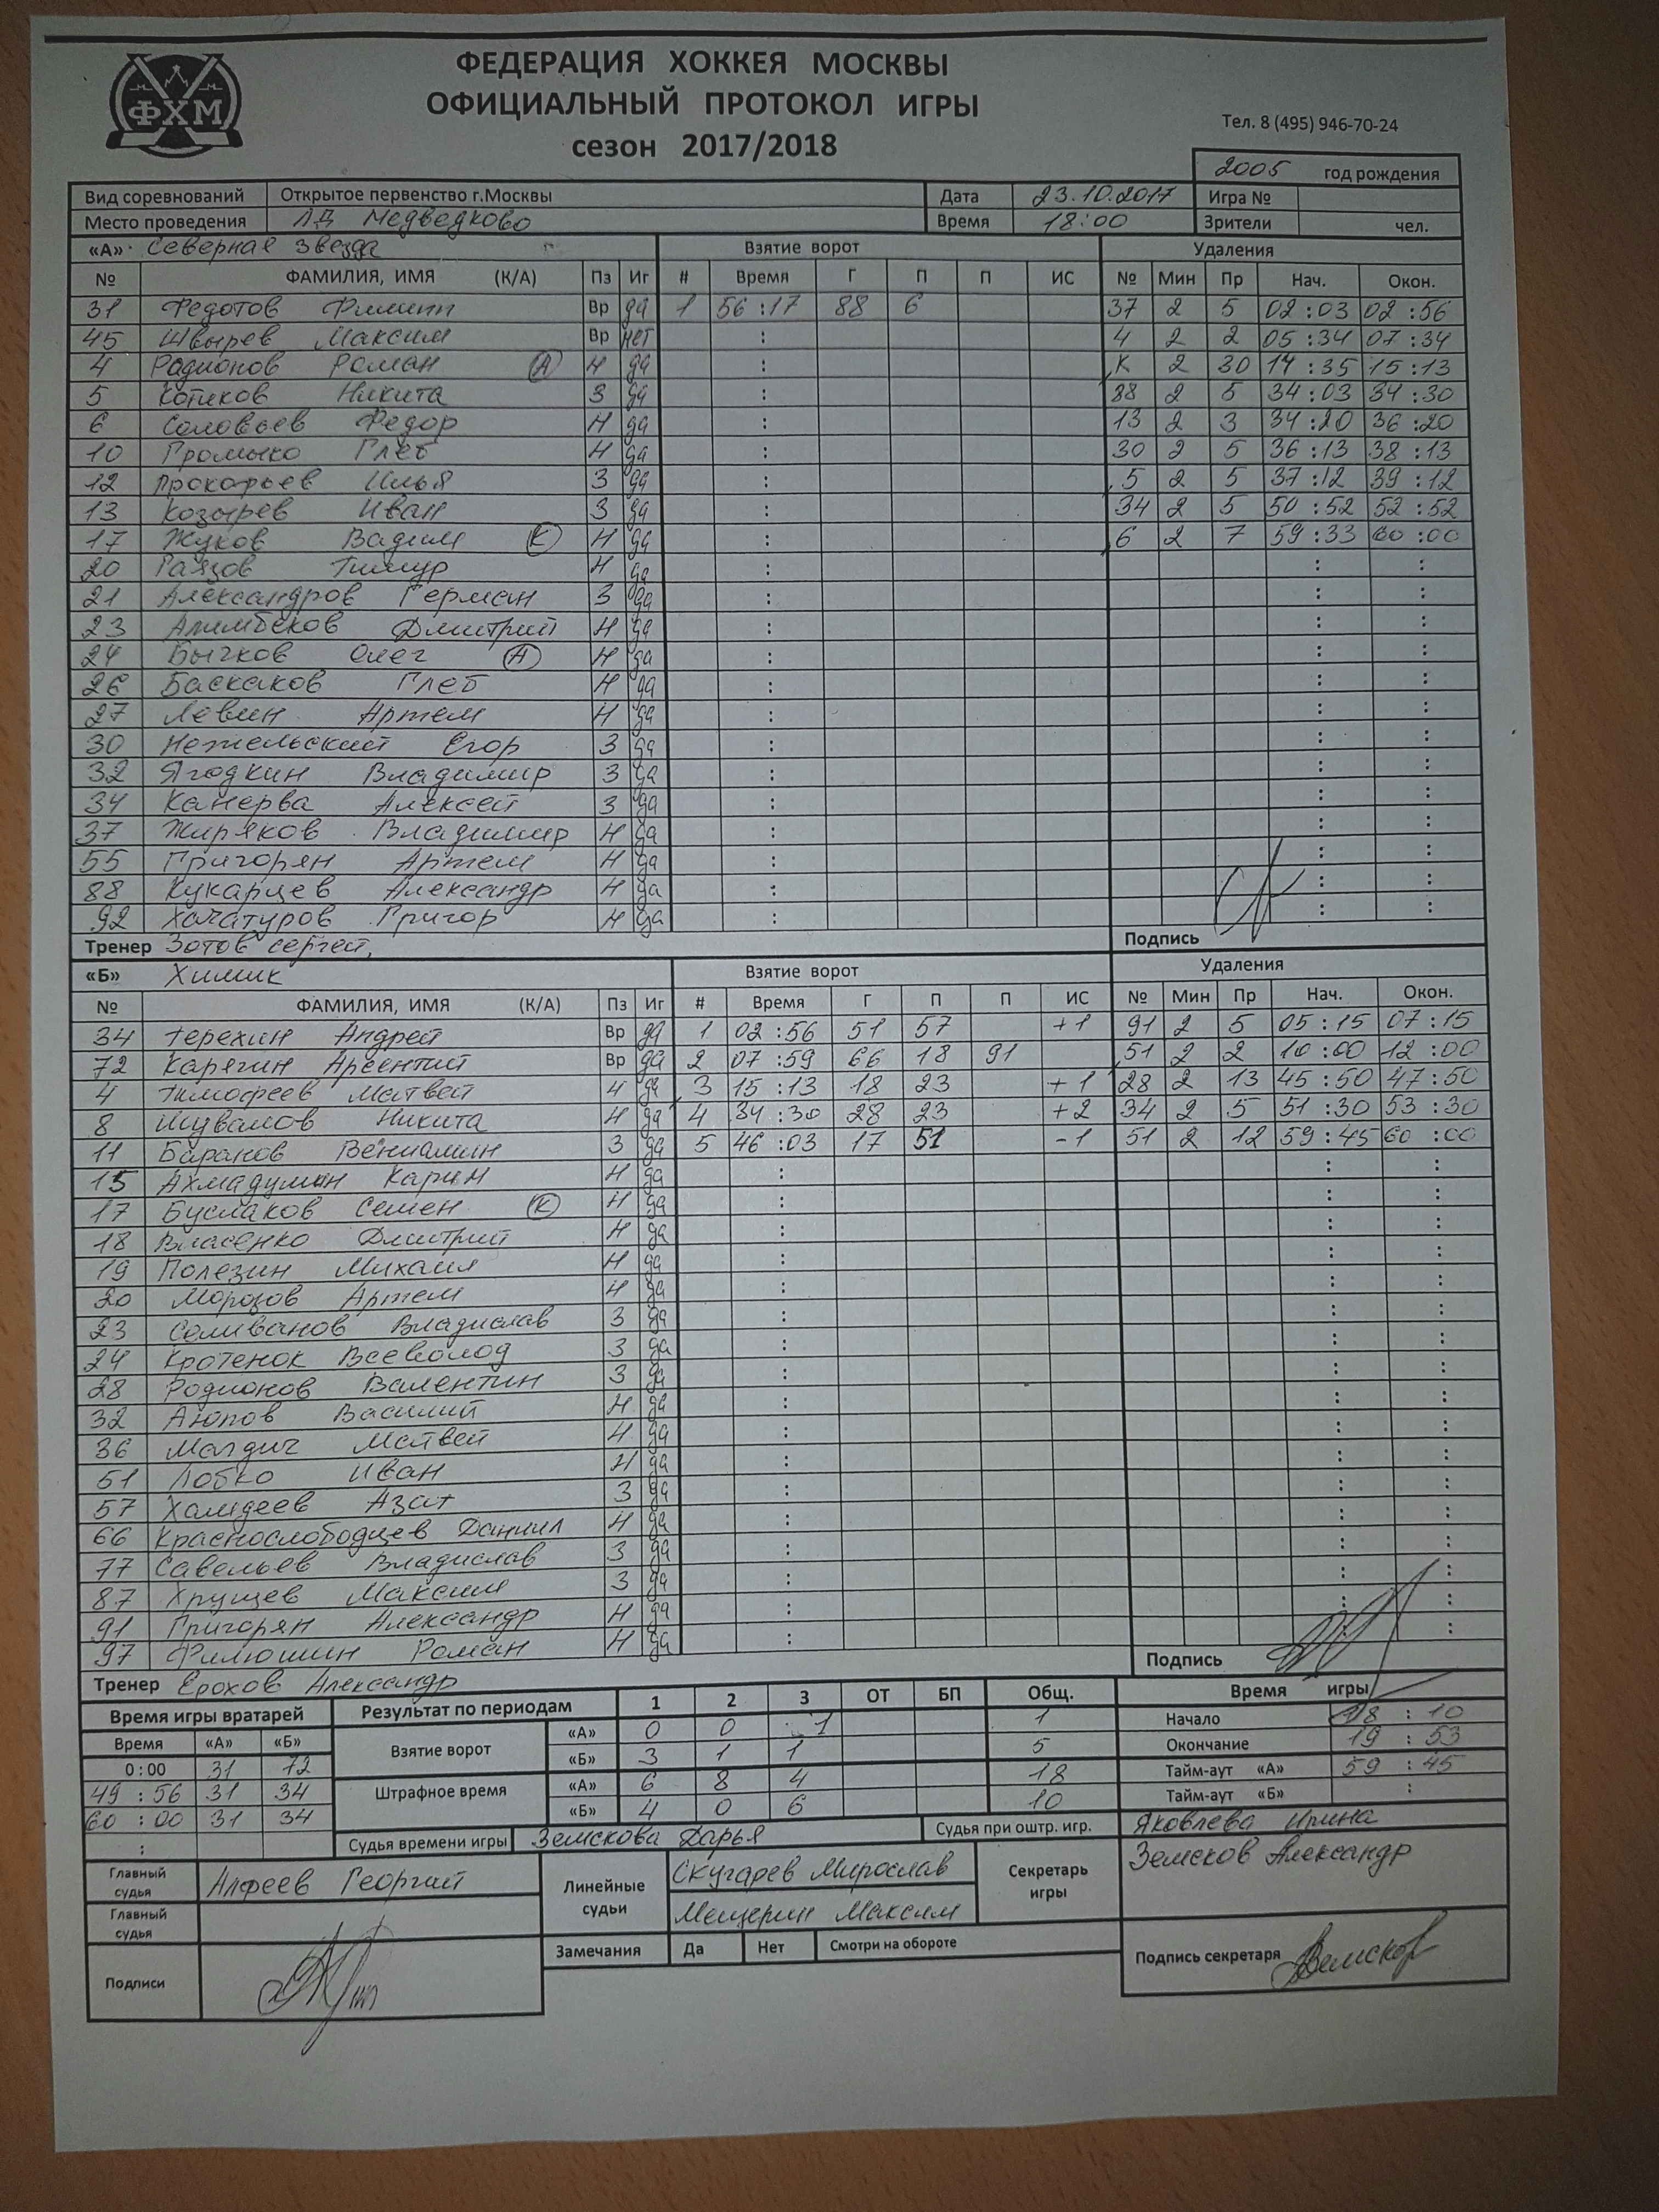 ФХМ
ФЕДЕРАЦИЯ ХОККЕЯ МОСКВЫ
ОФИЦИАЛЬНЫЙ ПРОТОКОЛ ИГРЫ
сезон 2017/2018
Тел. 8 (495) 946-70-24
2005 год рождения
Вид соревнований Открытое первенство г.Москвы Дата 23.10.2017 Игра №
Место проведения ЛД Медведково Время 18:00 Зрители чел.
«А» Северная звезда Взятие ворот Удаления
№ ФАМИЛИЯ, ИМЯ (К/А) Пз Иг # Время Г П П ИС № Мин Пр Нач. Окон.
31 Федотов Филипп Вр да 1 56:17 88 6 37 2 5 02:03 02:56
45 Швырев Максим Вр нет : 4 2 2 05:34 07:34
4 Радионов Роман (А) Н да : К 2 30 14:35 15:13
5 Котиков Никита З да : 88 2 5 34:03 34:30
6 Соловьев Федор Н да : 13 2 3 34:20 36:20
10 Громыко Глеб Н да : 30 2 5 36:13 38:13
12 Прокофьев Илья З да : 5 2 5 37:12 39:12
13 Козырев Иван З да : 34 2 5 50:52 52:52
17 Жуков Вадим (К) Н да : 6 2 7 59:33 60:00
20 Раязов Тимур Н да : : :
21 Александров Герман З да : : :
23 Алимбеков Дмитрий Н да : : :
24 Бычков Олег (А) Н да : : :
26 Баскаков Глеб Н да : : :
27 Левин Артем Н да : : :
30 Нежельский Егор З да : : :
32 Ягодкин Владимир З да : : :
34 Канерва Алексей З да : : :
37 Жиряков Владимир Н да : : :
55 Григорян Артем Н да : : :
88 Кукарцев Александр Н да : : :
92 Хачатуров Григор Н да : : :
Тренер Зотов Сергей Подпись
«Б» Химик Взятие ворот Удаления
№ ФАМИЛИЯ, ИМЯ (К/А) Пз Иг # Время Г П П ИС № Мин Пр Нач. Окон.
34 Терехин Андрей Вр да 1 02:56 51 57 +1 91 2 5 05:15 07:15
72 Карягин Арсентий Вр да 2 07:59 66 18 91 51 2 2 10:00 12:00
4 Тимофеев Матвей Н да 3 15:13 18 23 +1 28 2 13 45:50 47:50
8 Шувалов Никита Н да 4 34:30 28 23 +2 34 2 5 51:30 53:30
11 Баранов Вениамин З да 5 46:03 17 51 -1 51 2 12 59:45 60:00
15 Ахмадулин Карим Н да : : :
17 Буслаков Семен (К) Н да : : :
18 Власенко Дмитрий Н да : : :
19 Полезин Михаил Н да : : :
20 Морозов Артем Н да : : :
23 Селиванов Владислав З да : : :
24 Кротенок Всеволод З да : : :
28 Родионов Валентин З да : : :
32 Аюпов Василий Н да : : :
36 Магдич Матвей Н да : : :
51 Лобко Иван Н да : : :
57 Хамдеев Азат З да : : :
66 Краснослободцев Даниил Н да : : :
77 Савельев Владислав З да : : :
87 Хрущев Максим З да : : :
91 Григорян Александр Н да : : :
97 Филюшин Роман Н да : : :
Тренер Ерохов Александр Подпись
Время игры вратарей Результат по периодам 1 2 3 ОТ БП Общ. Время игры
Время «А» «Б» Взятие ворот «А» 0 0 1 1 Начало 18:10
0:00 31 72 «Б» 3 1 1 5 Окончание 19:53
49:56 31 34 Штрафное время «А» 6 8 4 18 Тайм-аут «А» 59:45
60:00 31 34 «Б» 4 0 6 10 Тайм-аут «Б» :
: Судья времени игры Земскова Дарья Судья при оштр. игр. Яковлева Ирина
Главный судья Алфеев Георгий Линейные судьи Скугарев Мирослав Секретарь игры Земсков Александр
Главный судья Мещерин Максим
Замечания Да Нет Смотри на обороте
Подписи Подпись секретаря Земсков